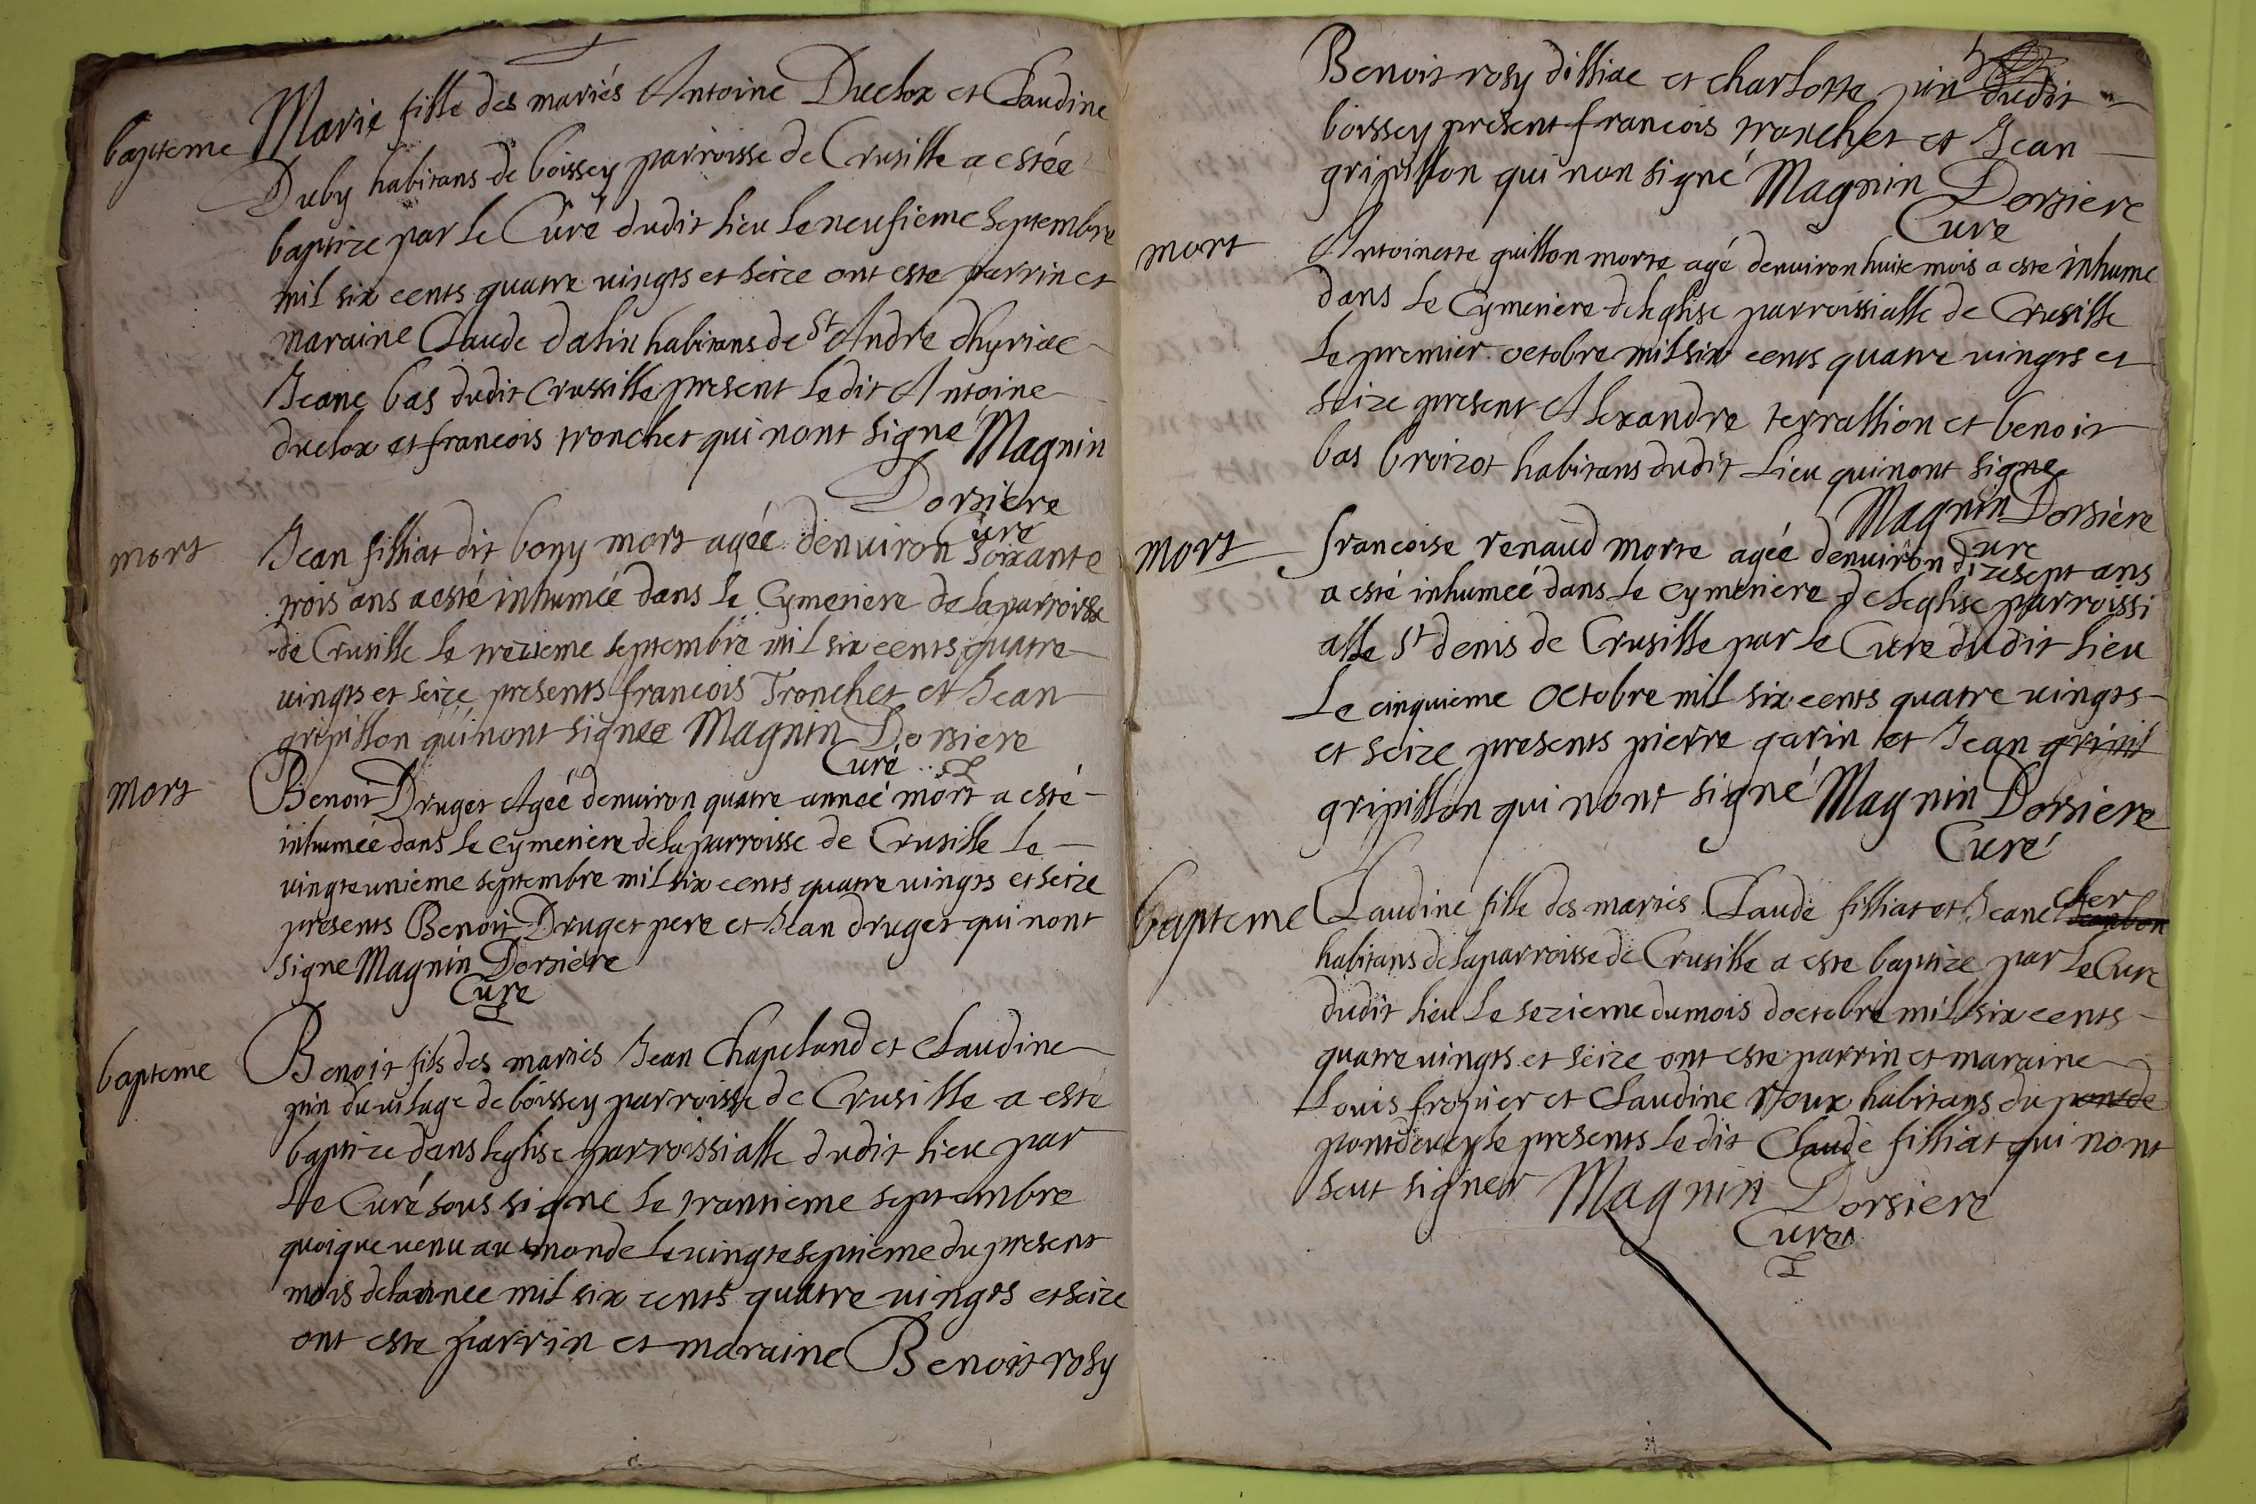 bapteme
Marie fille des mariés Antoine Duclox et Claudine
Duby habitans de boissey parroisse de Crusille a estée
baptize par le Curé dudit lieu le neufieme septembre
mil six cents quatre vingts et seize ont este parrin et
maraine Claude dalin habitans de St Andre dhyriac
Jeane bas dudit Crussille present le dit Antoine
duclox et francois tronchet qui nont signé Magnin
Dorsiere
Curé
mort
Jean filliat dit bony mort agée denuiron soixante
trois ans a esté inhumée dans le Cymetiere de la parroisse
de Crusille le trezieme septembre mil six cents quatre
vingts et seize presents francois Tronchet et Jean
gripillon qui nont signee Magnin Dorsiere
Curé
mort
Benoit Druget Agéé denuiron quatre anneé mort a esté
inhumée dans le cymetiere de la parroisse de Crusille le
vingte unieme septembre mil six cents quatre vingts et seize
presents Benoit Druget pere et Jean druget qui nont
signe Magnin Dorsiere
Cure
bapteme
Benoit fils des mariés Jean Chapeland et Claudine
pin du vilage de boissey parroisse de Crusille a esté
baptize dans leglise parroissialle dudit lieu par
Le Curé sous signe le trantieme septembre
quoique venu au monde le vingte septieme du present
mois de lannee mil six cents quatre vingts et seize
ont este parrin et maraine Benoit rosy
5
Benoit rosy dilliac et charlotte pin dudit
boissey present francois tronchet et Jean
gripillon qui non signé Magnin Dorsiere
Cure
mort
Antoinette guillon morte agé denuiron huite mois a este inhume
dans le Cymetiere de leglise parroissialle de Crusille
le premier octobre mil six cents quatre vingts et
seize present Alexandre terrallion et benoit
bas broizot habitans dudit lieu qui nont signe
Magnin Dorsiere
Cure
mort
francoise renaud morte agéé denuiron dizesept ans
a esté inhumeé dans le cymetiere de leglise parroissi
alle St denis de Crusille par le Cure dudit lieu
Le cinquieme octobre mil six cents quatre vingts
et seize presents pierre garin et Jean gripil
gripillon qui nont signé Magnin Dorsiere
Curé
bapteme
Claudine fille des mariés Claude filliat et Jeane cher
habitans de la parroisse de Crusille a este baptize par le Cure
dudit lieu le sezieme du mois doctobre mil six cents
quatre vingts et seize ont este parrin et maraine
Louis fropier et Claudine roux habitans du pont de
pont de veyle presents le dit Claude filliat qui nont
seut signer Magnin Dorsiere
Cure